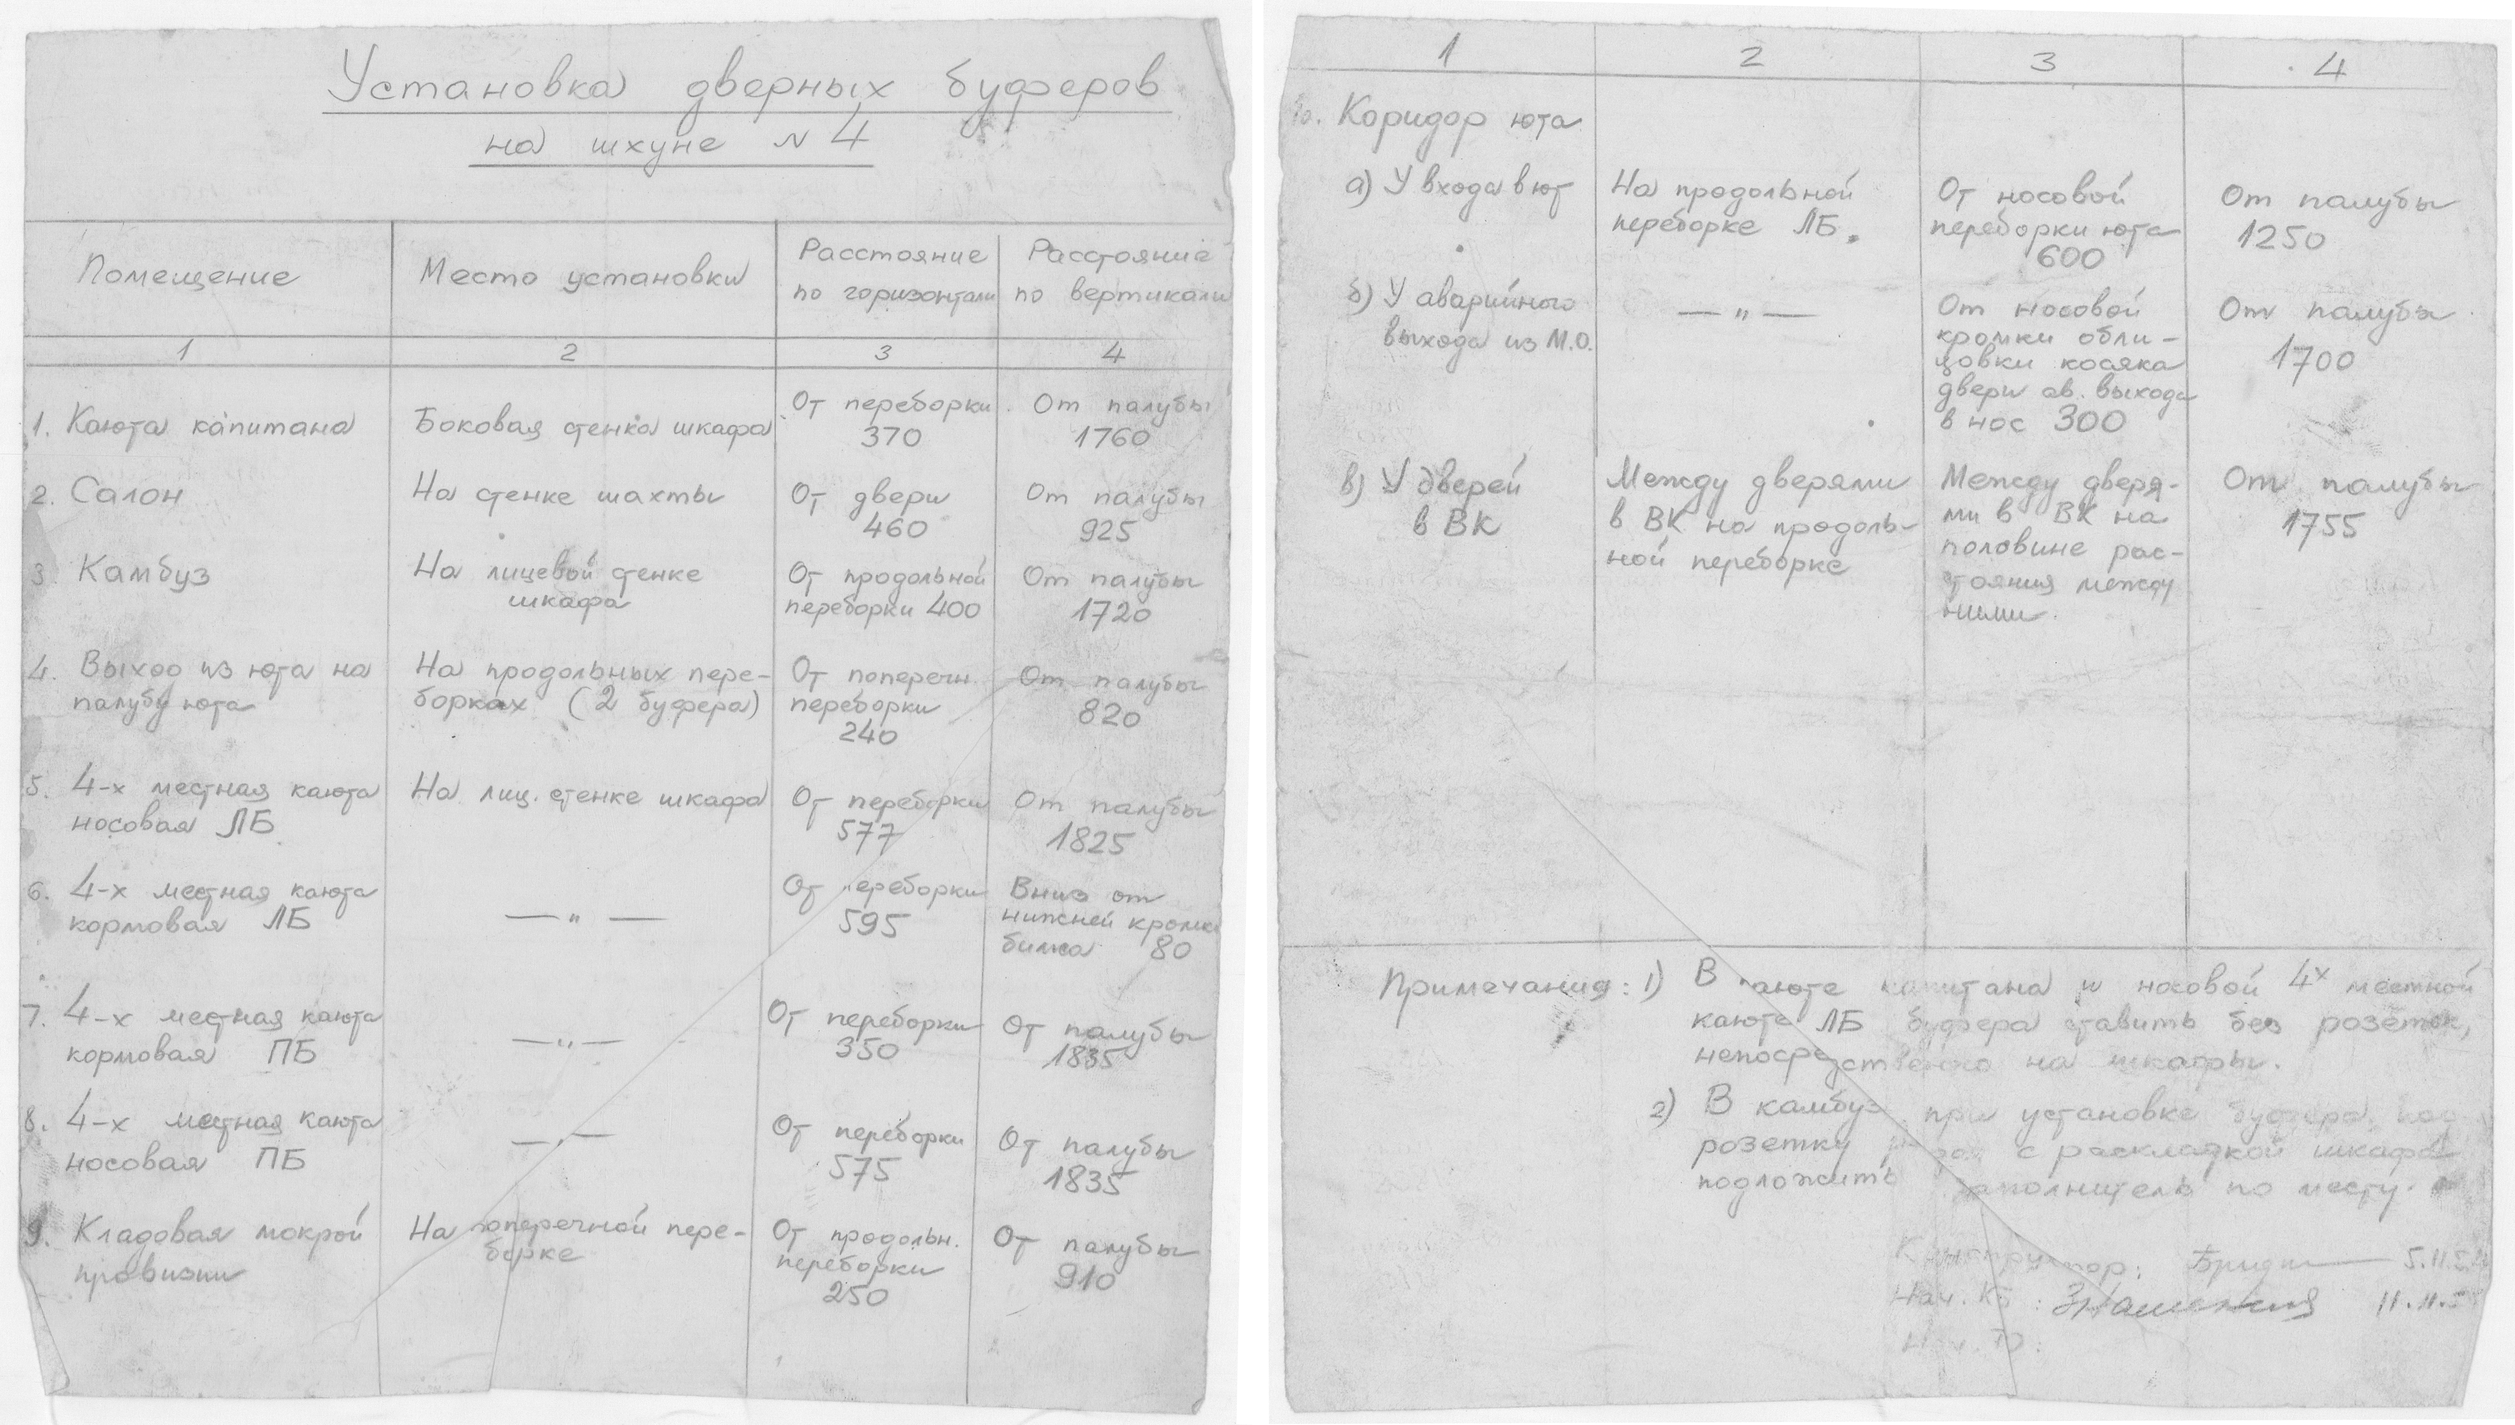 Установка дверных буферов
на шхуне N 4
Помещение
Место установки
Расстояние
по горизонтали
Расстояние
по вертикали
1 2 3 4
1. Каюта капитана
Боковая стенка шкафа
От переборки
370
От палубы
1760
2. Салон
На стенке шахты
От двери
460
От палубы
925
3. Камбуз
На лицевой стенке
шкафа
От продольной
переборки 400
От палубы
1720
4. Выход из юта на
палубу юта
На продольных пере-
борках (2 буфера)
От поперечн.
переборки
240
От палубы
820
5. 4-х местная каюта
носовая ЛБ
На лиц. стенке шкафа
От переборки
577
От палубы
1825
6. 4-х местная каюта
кормовая ЛБ
— " —
От переборки
595
Вниз от
нижней кромки
бимса 80
7. 4-х местная каюта
кормовая ПБ
— " —
От переборки
350
От палубы
1835
8. 4-х местная каюта
носовая ПБ
— " —
От переборки
575
От палубы
1835
9. Кладовая мокрой
провизии
На поперечной пере-
борке
От продольн.
переборки
250
От палубы
910
1 2 3 4
10. Коридор юта
а) У входа в ют
На продольной
переборке ЛБ.
От носовой
переборки юта
600
От палубы
1250
б) У аварийного
выхода из М.О.
— " —
От носовой
кромки обли-
цовки косяка
двери ав. выхода
в нос 300
От палубы
1700
в) У дверей
в ВК
Между дверями
в ВК на продоль-
ной переборке
Между дверя-
ми в ВК на
половине рас-
стояния между
ними.
От палубы
1755
Примечания: 1) В каюте капитана и носовой 4х местной
каюте ЛБ буфера ставить без розеток,
непосредственно на шкафы.
2) В камбуз при установке буфера под
розетку с раскладкой шкафа
подложить заполнитель по месту.
Конструктор: 5.11.5
Нач. КБ: 11.11.5